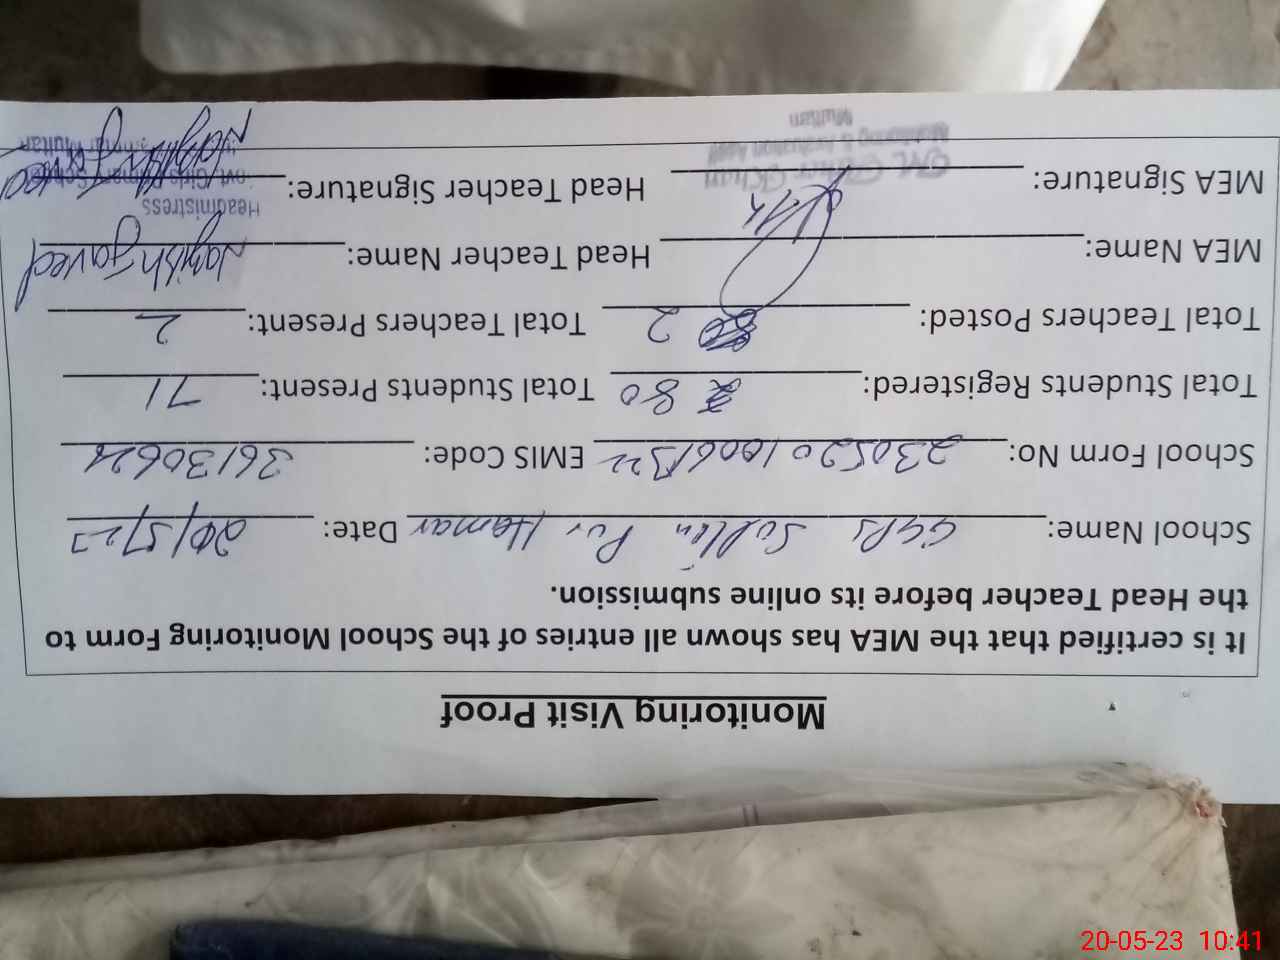 Monitoring Visit Proof
It is certified that the MEA has shown all entries of the School Monitoring Form to
the Head Teacher before its online submission.
School Name: GGPS Sultan Pur Hamar Date: 20/5/23
School Form No: EMIS Code:
Total Students Registered: 80 Total Students Present: 71
Total Teachers Posted: 2 Total Teachers Present: 2
MEA Name: Head Teacher Name: Nazish Javed
Headmistress
MEA Signature: Head Teacher Signature: Nazish Javed
Govt. Girls Primary School
Monitoring & Evaluation Asstt
Multan Multan
20-05-23 10:41